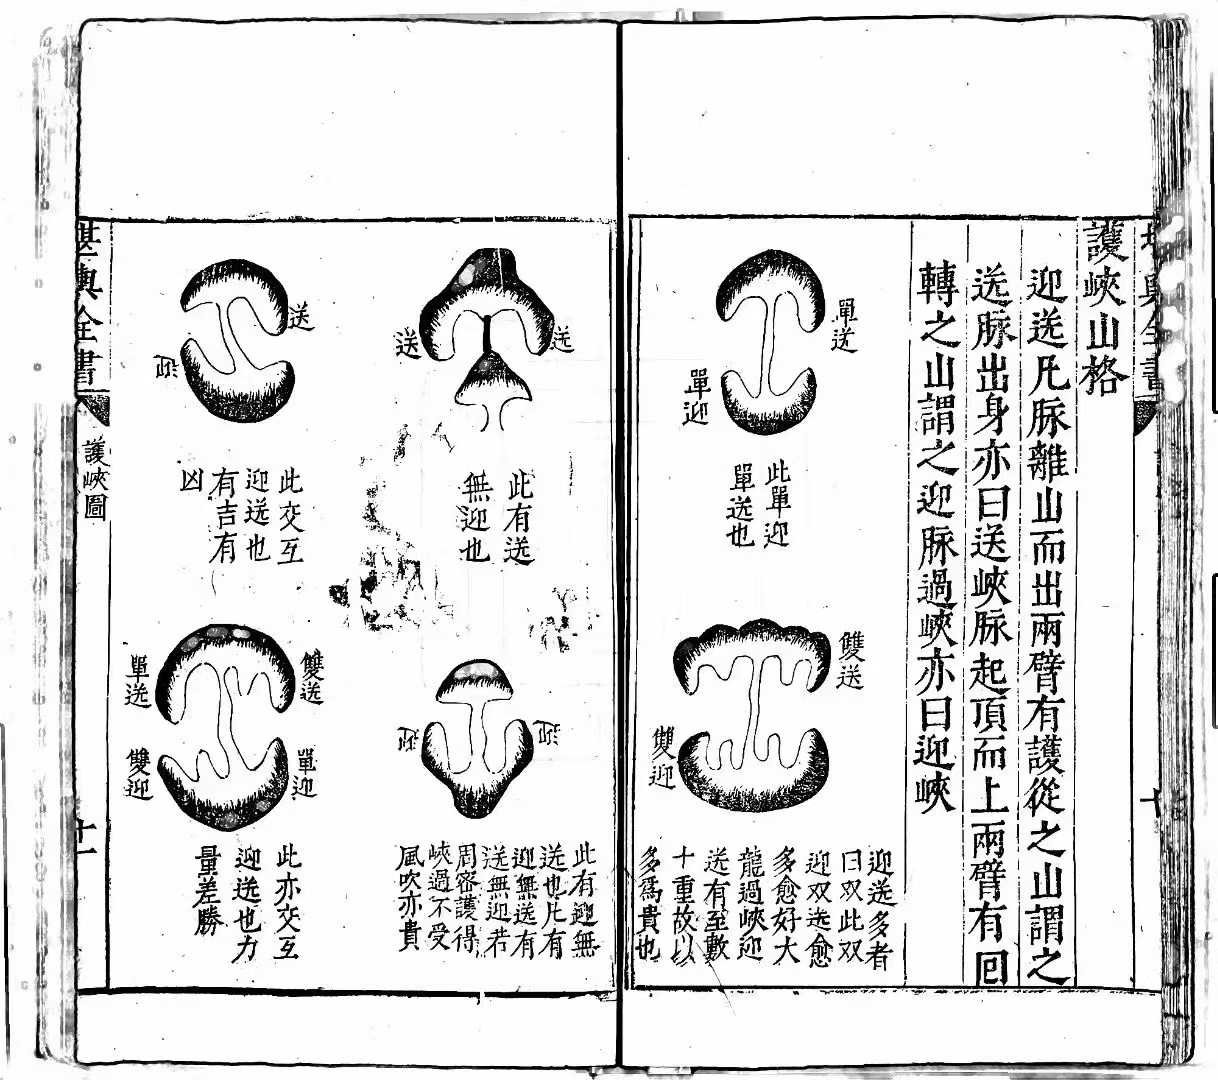 護峽山格
迎送凡脉離山而出兩臂有護從之山謂之
送脉出身亦曰送峽脉起頂而上兩臂有回
轉之山謂之迎脉過峽亦曰迎峽
單送
單迎
此單迎
單送也
雙送
雙迎
迎送多者
曰双此双
迎双送愈
多愈好大
龍過峽迎
送有至數
十重故以
多為貴也
送
送
此有送
無迎也
迎
迎
此有迎無
送也凡有
迎無送有
送無迎若
周密護得
峽過不受
風吹亦貴
送
迎
此交互
迎送也
有吉有
凶
雙送
單送
單迎
雙迎
此亦交互
迎送也力
量差勝
堪輿全書
護峽圖
十一